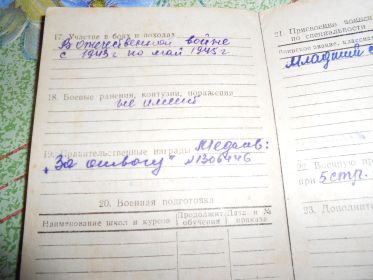 17. Участие в боях и походах
В Отечественной войне
с 1943 г по май 1945 г
18. Боевые ранения, контузии, поражения
не имеет
19. Правительственные награды Медаль:
„За отвагу" №1306446
20. Военная подготовка
Наименование школ и курсов
Продолжит.
обучения
Дата и №
приказа
21. Присвоение воинск
по специальности
Воинское звание, классна
Младший с
Военную пр
при 5 стр.
23. Дополнит